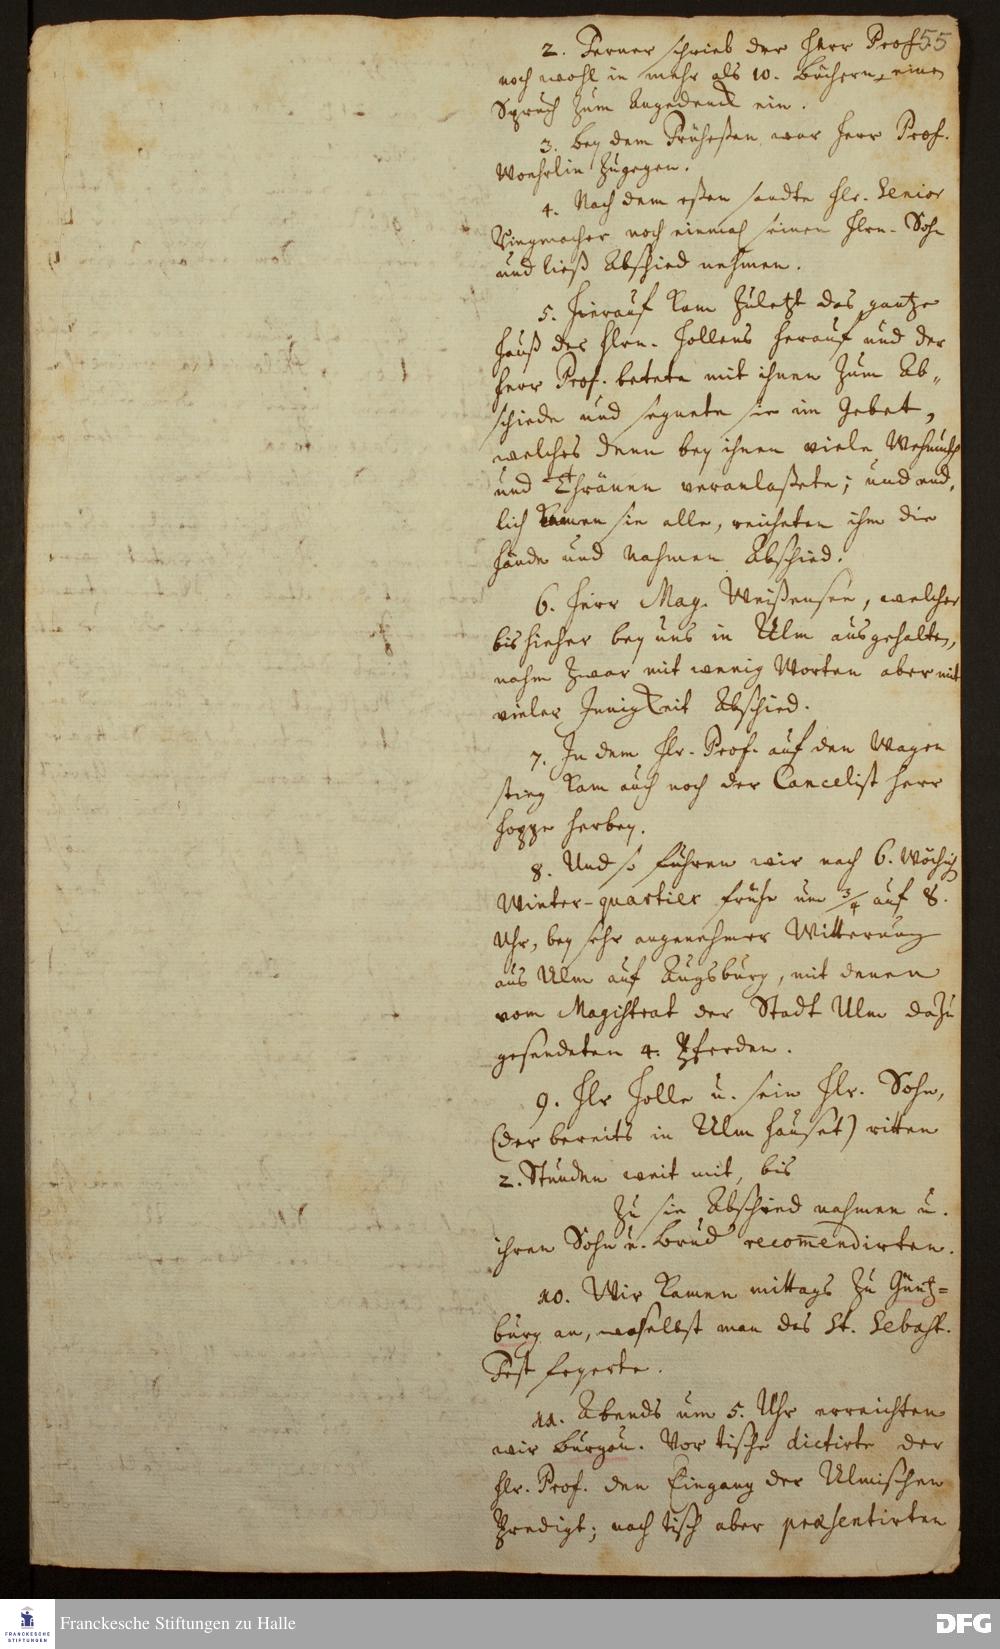 55
2. Ferner schrieb der Herr Prof.
noch wohl in mehr als 10. Büchern einen
Spruch zum Angedenck ein.
3. Bey dem Früheßen war Herr Prof.
Woehrlin zugegen.
4. Nach dem eßen sandte Hr. Senior
noch einmal seinen Hrn. Sohn
und ließ Abschied nehmen.
5. Hierauf kam zuletzt das gantze
Hauß des Hrn. Hollens herauf und der
Herr Prof. betete mit ihnen zum Ab-
schiede und segnete sie im Gebet,
welches denn bey ihnen viele Wehmuth
und Thränen veranlaßete; und end-
lich kamen sie alle, reicheten ihm die
Hände und nahmen Abschied.
6. Herr Mag. Weißensee, welcher
bishieher bey uns in Ulm ausgehalten,
nahm zwar mit wenig Worten aber mit
vieler Innigkeit Abschied.
7. In dem Hr. Prof. auf den Wagen
stieg kam auch noch der Cancelist Herr
Hoppe herbey.
8. Und so führen wir nach 6. wöchig
Winter-quartier frühe um 3/4 auf 8.
Uhr, bey sehr angenehmer Witterung
aus Ulm auf Augsburg, mit denen
vom Magistrat der Stadt Ulm dazu
gesendeten 4. Pferden.
9. Hr Holle u. sein Hr. Sohn,
(der bereits in Ulm hauset) ritten
2. Stunden weit mit, bis
zu sie Abschied nahmen u.
ihren Sohn u. Brud recomendirten.
10. Wir kamen mittags zu Güntz=
burg an, woselbst man das St. Sebast.
Fest feyerte.
11. Abends um 5. Uhr erreichten
wir Burgau. Vor tische dictirte der
Hr. Prof. den Eingang der Ulmischen
Predigt; nach tisch aber præsentirten
FRANCKESCHE
STIFTUNGEN
Franckesche Stiftungen zu Halle
DFG